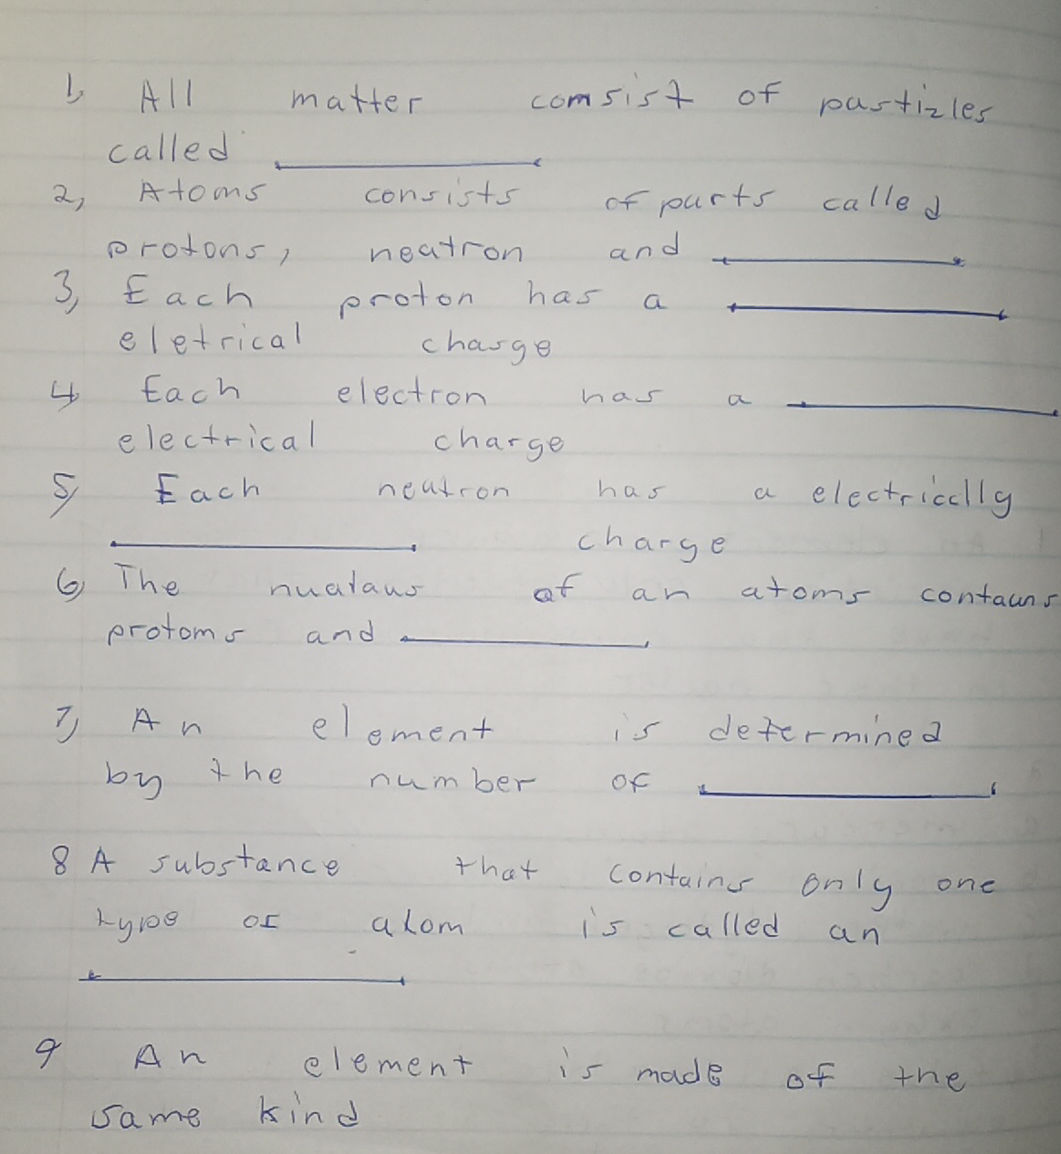 1, All matter comsist of pastizles
called
2, Atoms consists of parts called
protons, neutron and
3, Each proton has a
eletrical charge
4 Each electron has a
electrical charge
5, Each neutron has a electriclly
charge
6, The nualaus of an atoms contauns
protoms and
7, An element is determined
by the number of
8 A substance that contains only one
type of atom is called an
9 An element is made of the
same kind